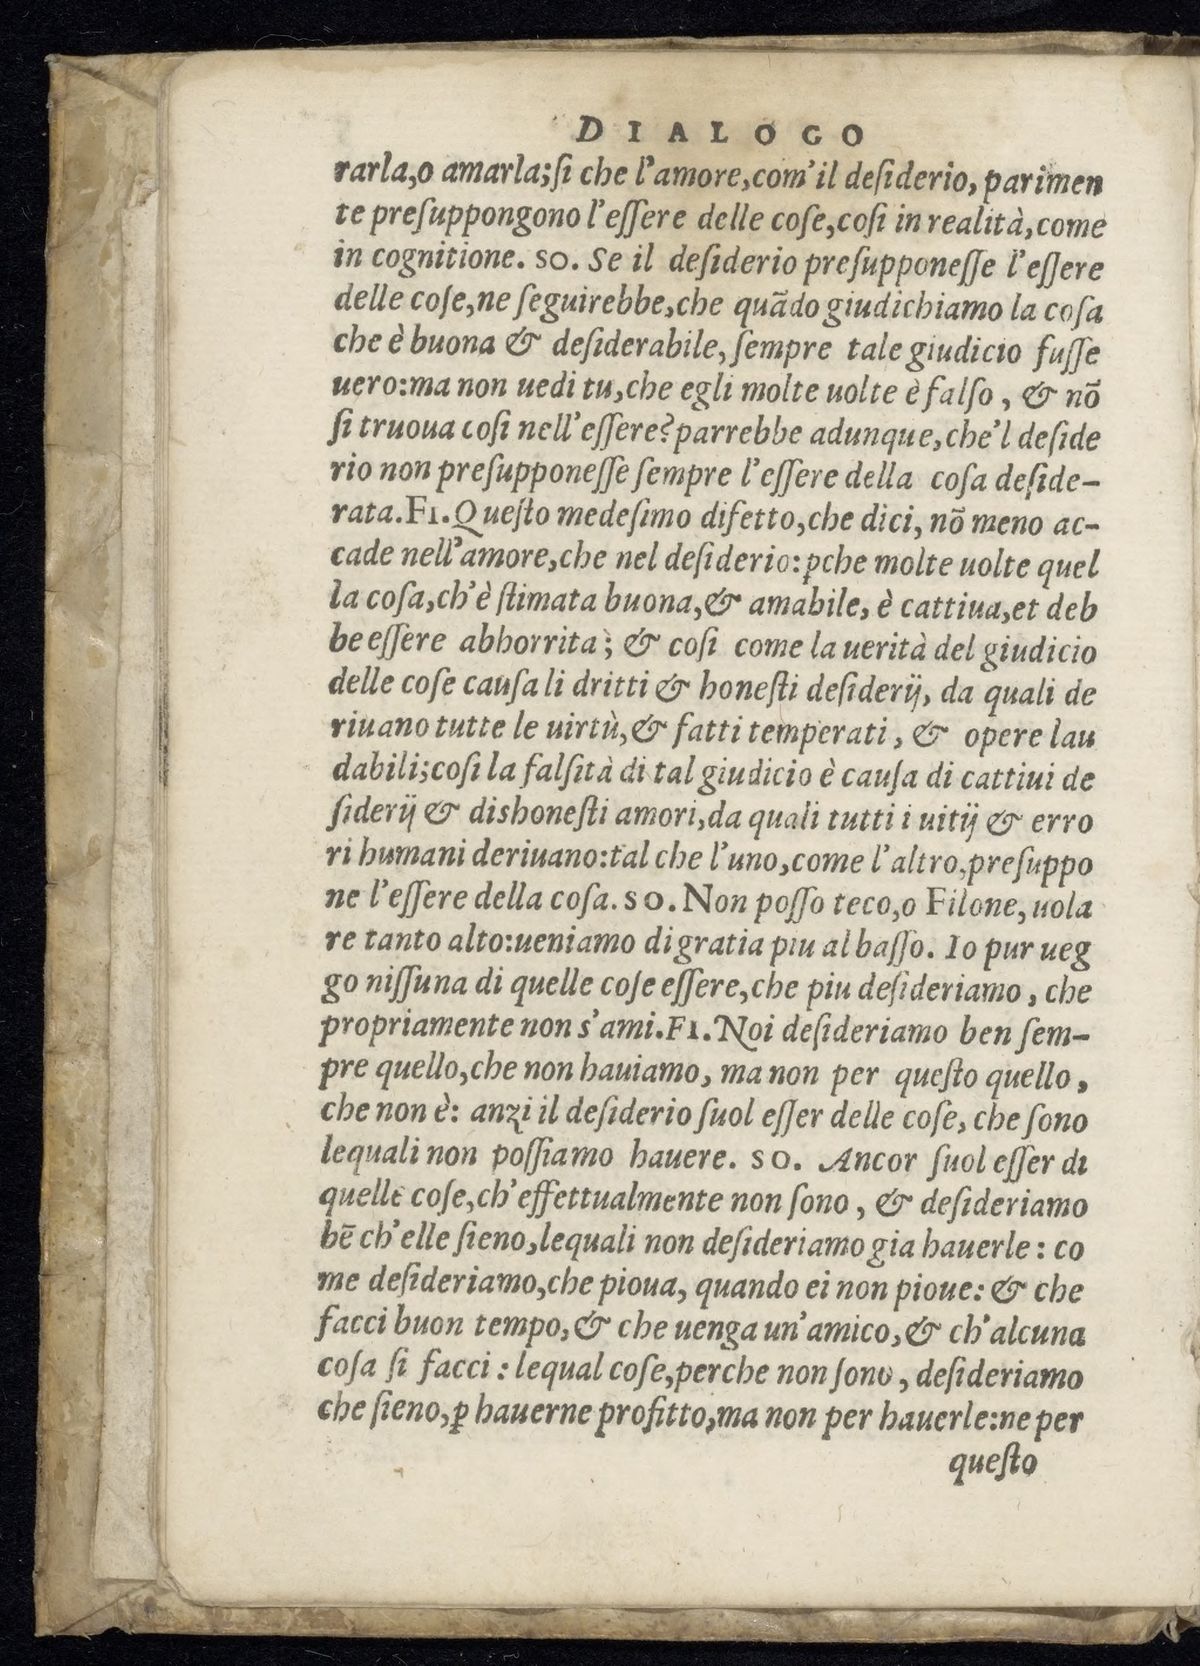 DIALOGO
rarla,o amarla;ſi che l'amore,com' il deſiderio, parimen
te preſuppongono l'eſſere delle coſe,coſi in realità,come
in cognitione. SO. Se il deſiderio preſupponeſſe l'eſſere
delle coſe,ne ſeguirebbe,che quãdo giudichiamo la coſa
che è buona & deſiderabile, ſempre tale giudicio fuſſe
uero:ma non uedi tu,che egli molte uolte è falſo, & nõ
ſi truoua coſi nell'eſſere? parrebbe adunque,che'l deſide
rio non preſupponeſſe ſempre l'eſſere della coſa deſide-
rata.FI.Queſto medeſimo difetto,che dici, nõ meno ac-
cade nell'amore,che nel deſiderio: ꝑche molte uolte quel
la coſa,ch'è ſtimata buona,& amabile, è cattiua,et deb
be eſſere abhorrita; & coſi come la uerità del giudicio
delle coſe cauſa li dritti & honeſti deſiderij, da quali de
riuano tutte le uirtù,& fatti temperati, & opere lau
dabili;coſi la falſità di tal giudicio è cauſa di cattiui de
ſiderij & dishoneſti amori,da quali tutti i uitij & erro
ri humani deriuano:tal che l'uno,come l'altro,preſuppo
ne l'eſſere della coſa.SO.Non poſſo teco,o Filone, uola
re tanto alto:ueniamo di gratia piu al baſſo. Io pur ueg
go niſſuna di quelle coſe eſſere,che piu deſideriamo, che
propriamente non s'ami.FI.Noi deſideriamo ben ſem-
pre quello,che non hauiamo, ma non per queſto quello,
che non è: anzi il deſiderio ſuol eſſer delle coſe, che ſono
lequali non poſſiamo hauere. SO. Ancor ſuol eſſer di
quelle coſe,ch'effettualmente non ſono, & deſideriamo
bẽ ch'elle ſieno,lequali non deſideriamo gia hauerle: co
me deſideriamo,che pioua, quando ei non pioue: & che
facci buon tempo,& che uenga un'amico,& ch'alcuna
coſa ſi facci: lequal coſe,perche non ſono, deſideriamo
che ſieno,ꝑ hauerne profitto,ma non per hauerle:ne per
queſto